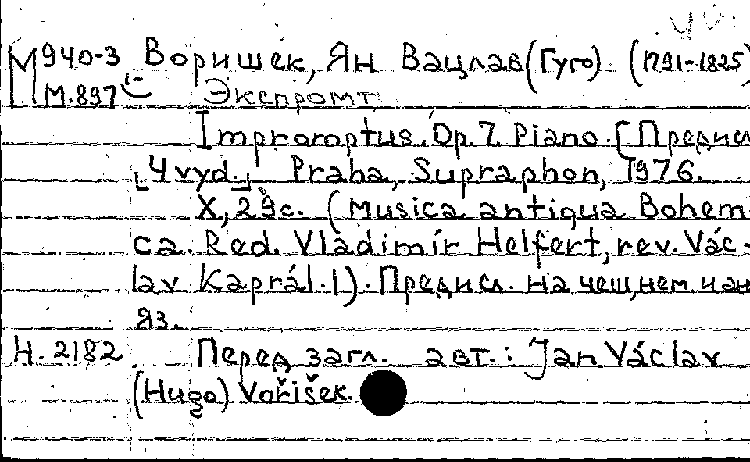 М 940-3 Воришек, Ян Вацлав (Гуго) (1791-1825)
М.897 Экспромт
Impromptus. Op. 7. Piano. [Предисл
4 vyd. Praha, Supraphon, 1976.
X, 29 с. (Musica antiqua Bohem
ca. Red. Vladimír Helfert, rev. Vác-
lav Kaprál. 1). Предисл. на чеш, нем и ан
яз.
Н. 2182 Перед загл. авт.: Jan Václav
(Hugo) Voříšek.